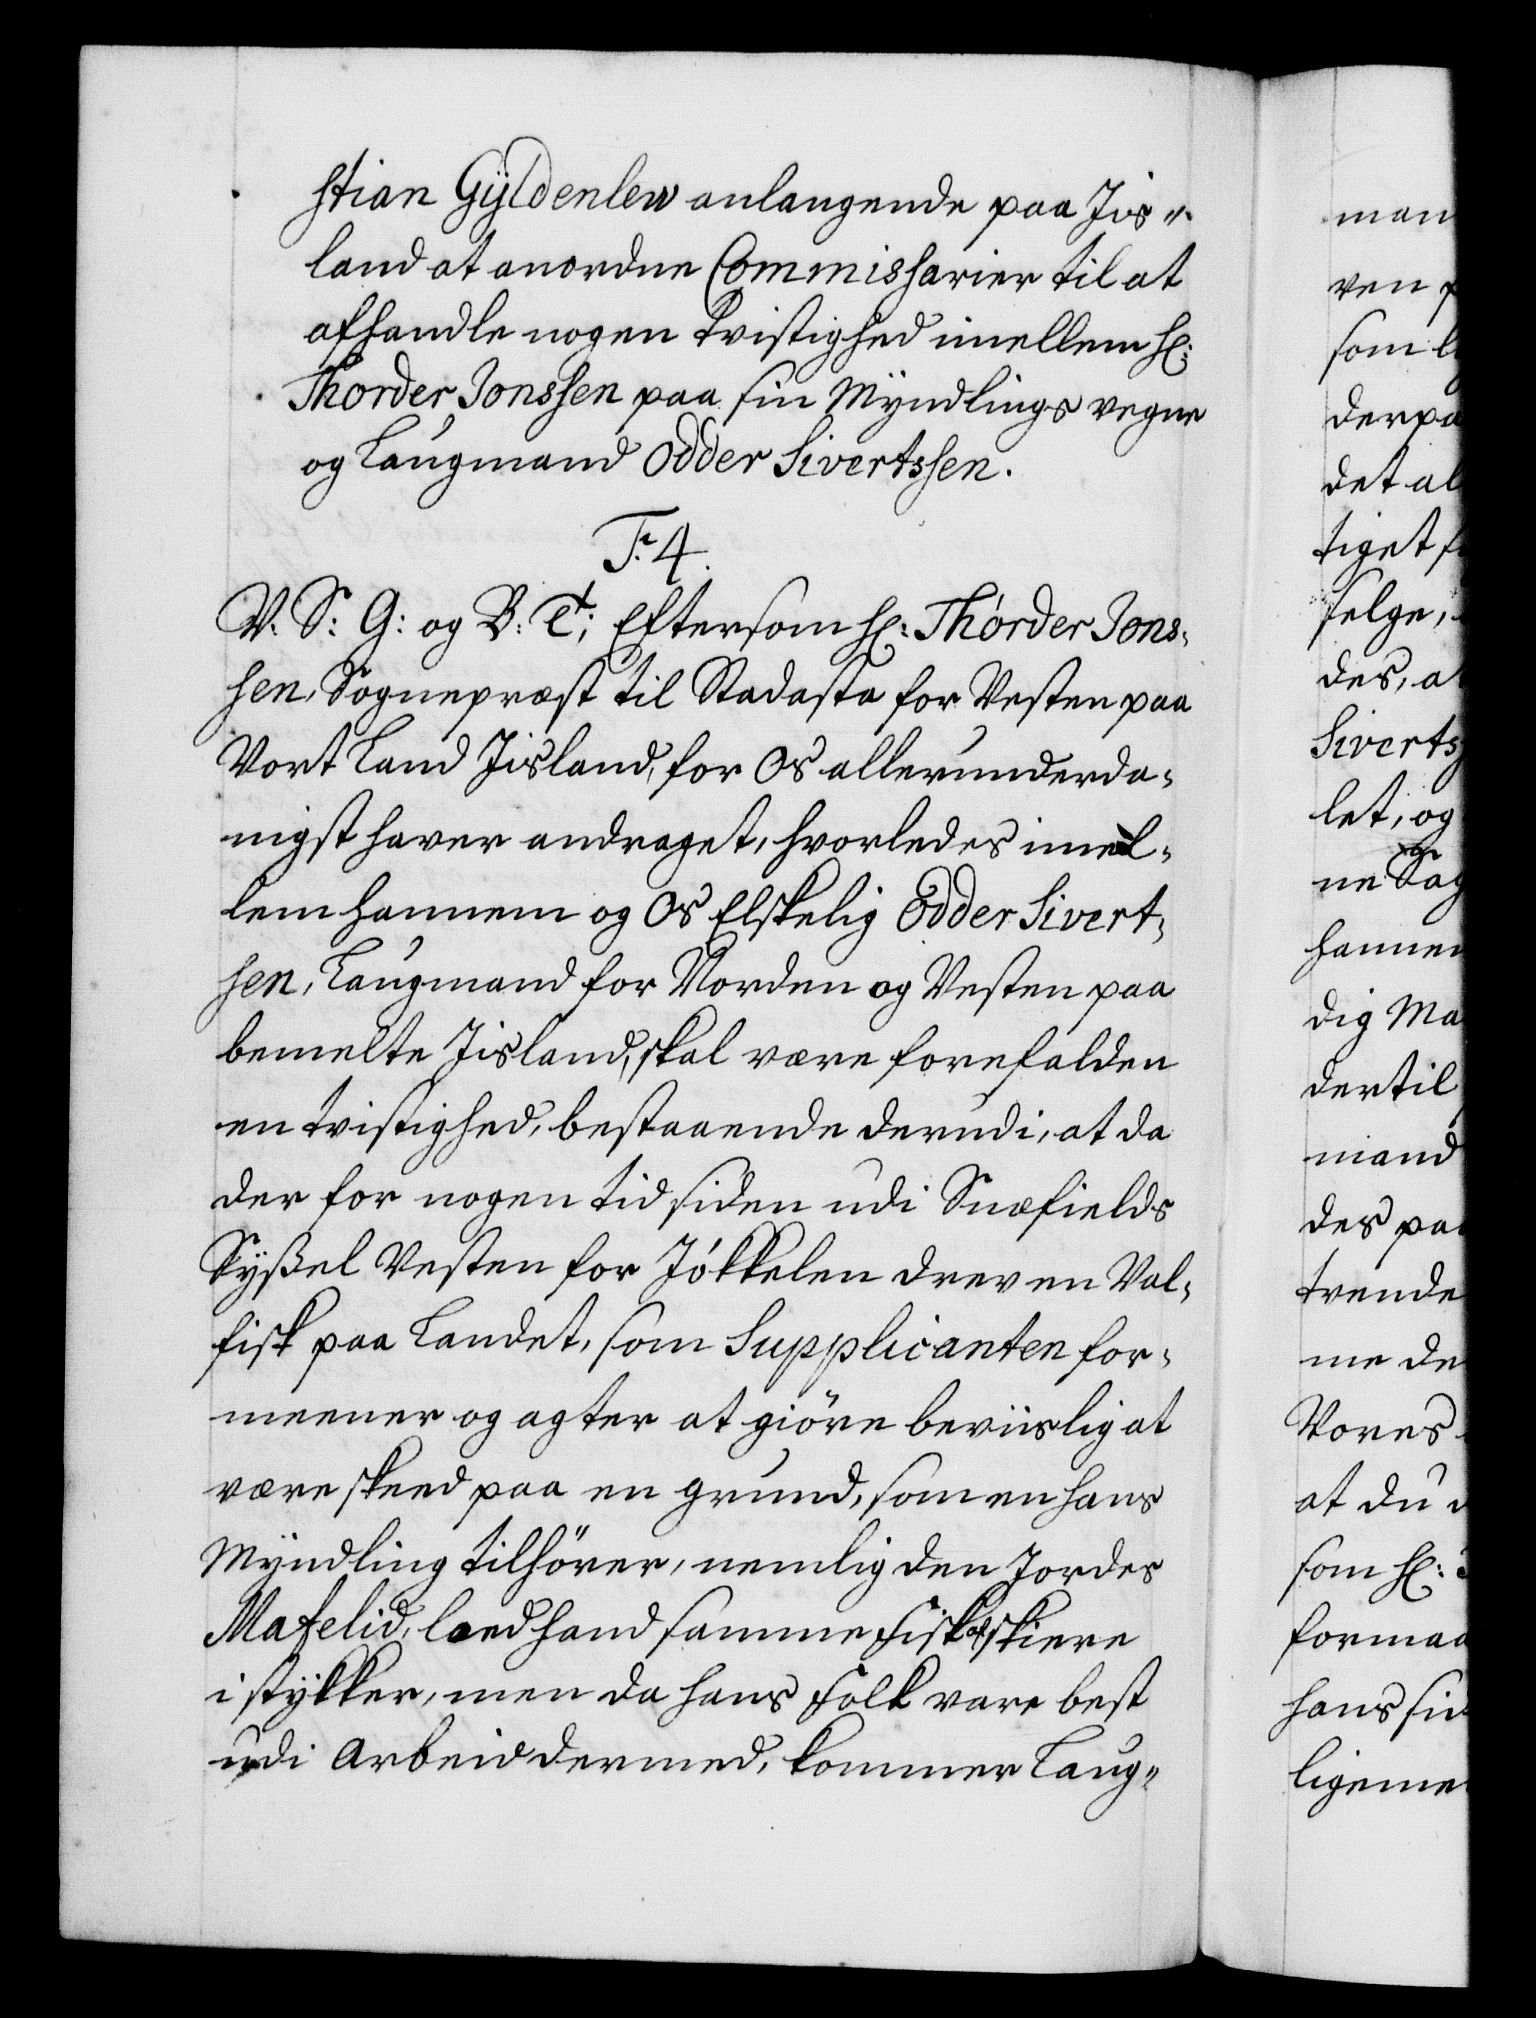 stian Gyldenlew anlangende paa Jis"
land at anordne Commissarier til at
afhandle nogen tvistighed imellem Hr:
Thorder Jonssen paa sin Myndlings vegne
og Laugmand Odder Sivertssen.
F. 4.
V. S: G: og B: Et; Eftersom Hr: Thórder Jons-
sen, Sognepræst til Stadasta for Vesten paa
Vort Land Jisland, for Os allerunderda-
nigst haver andraget, hvorledes imel-
lem hannem og Os Elskelig Odder Sivert-
sen, Laugmand for Norden og Vesten paa
bemelte Jisland, skal være forefalden
en tvistighed, bestaaende derudi, at da
der for nogen tid siden udi Snefields
Syßel Vesten for Jókkelen drev en Val-
fisk paa Landet, som Supplicanten for-
meener og agter at giöre beviislig at
være skeed paa en grund, som en hans
Myndling tilhörer, nemlig den Jordes
Mafelid, loed hand samme Fisk skiere
i stykker, men da hans Folk vare best
udi Arbeid dermed, kommer Laug"
man
ven
som
derpa
det al
tiget
felge,
des, a
Siverts
let, og
ne Sag
hannem
dig Ma
dertil
mand
des paa
trende
me de
Vores
at du
som Hr:
formaa
hans
ligeme